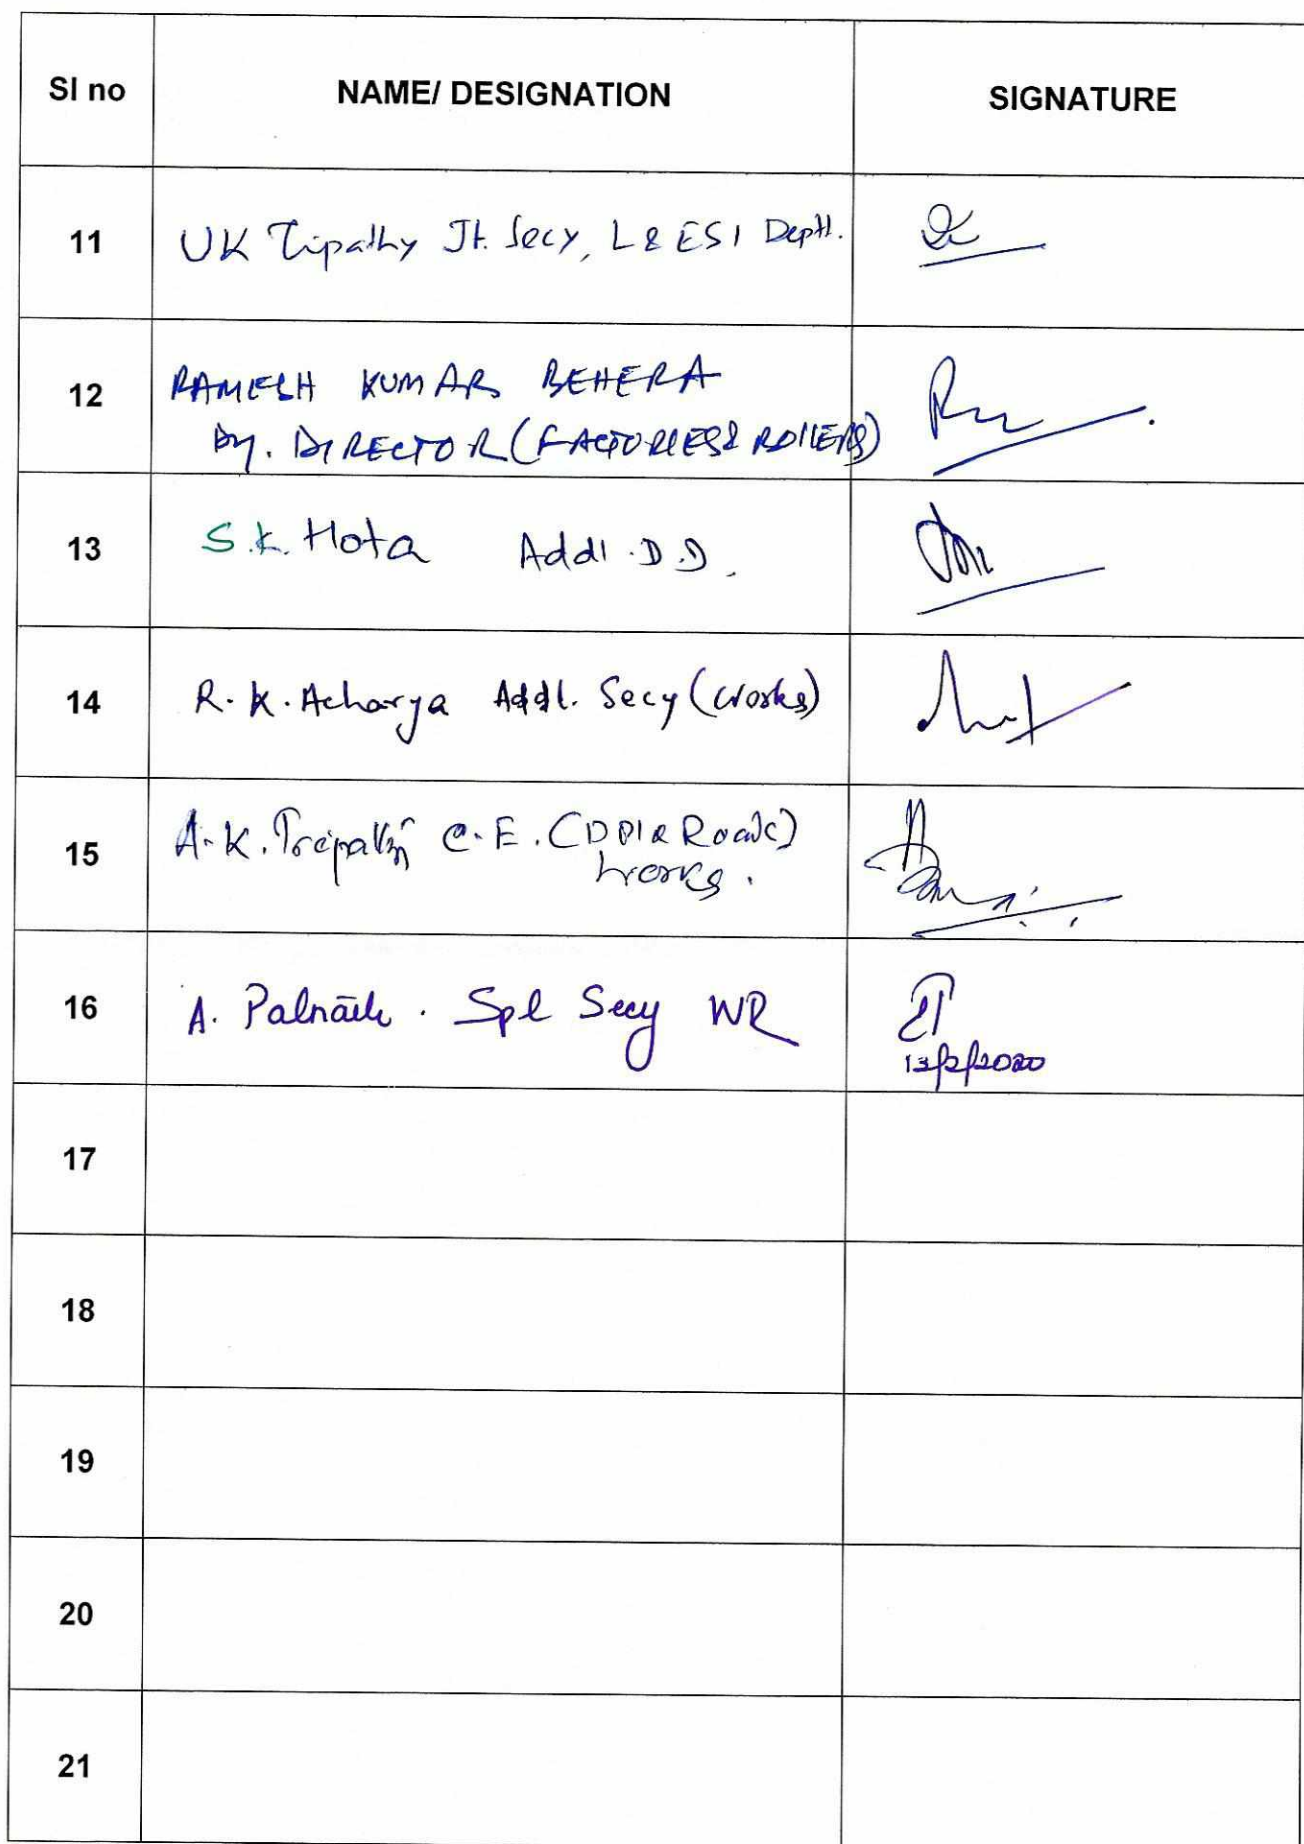 Sl no NAME/ DESIGNATION SIGNATURE
11 UK Tripathy Jt. Secy, L & ESI Deptt.
12 RAMESH KUMAR BEHERA
Dy. DIRECTOR (FACTORIES & BOILERS)
13 S.K. Hota Addl. D.D.
14 R. K. Acharya Addl. Secy (Works)
15 A. K. Tripathy C.E. (DPI & Roads)
Works.
16 A. Patnaik. Spl Secy WR
13/2/2020
17
18
19
20
21